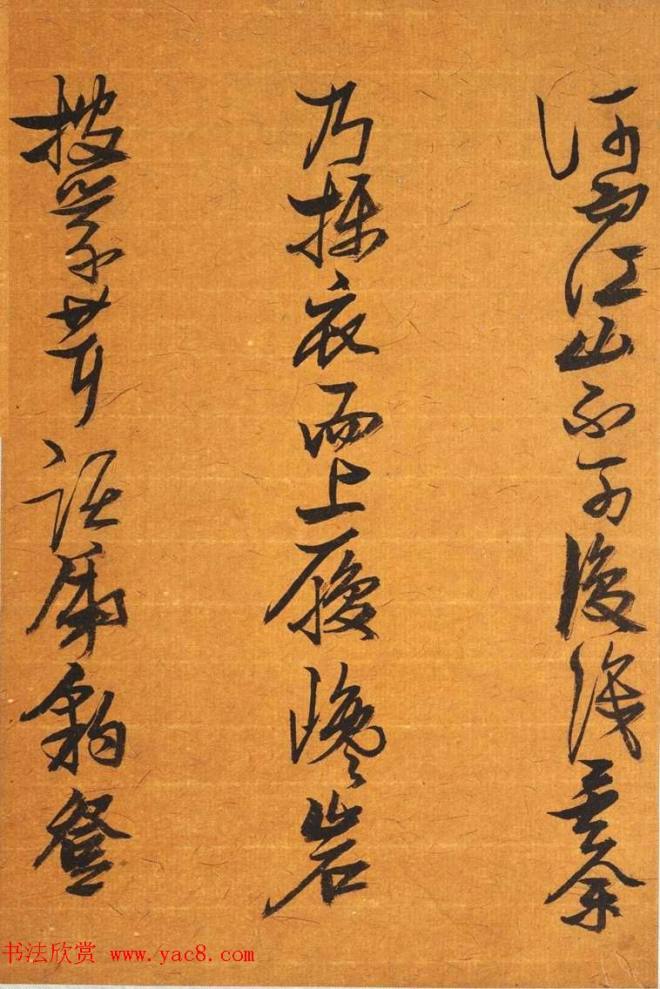 何而江山不可復識矣余
乃攝衣而上履巉岩
披蒙茸踞虎豹登
书法欣赏 www.yac8.com